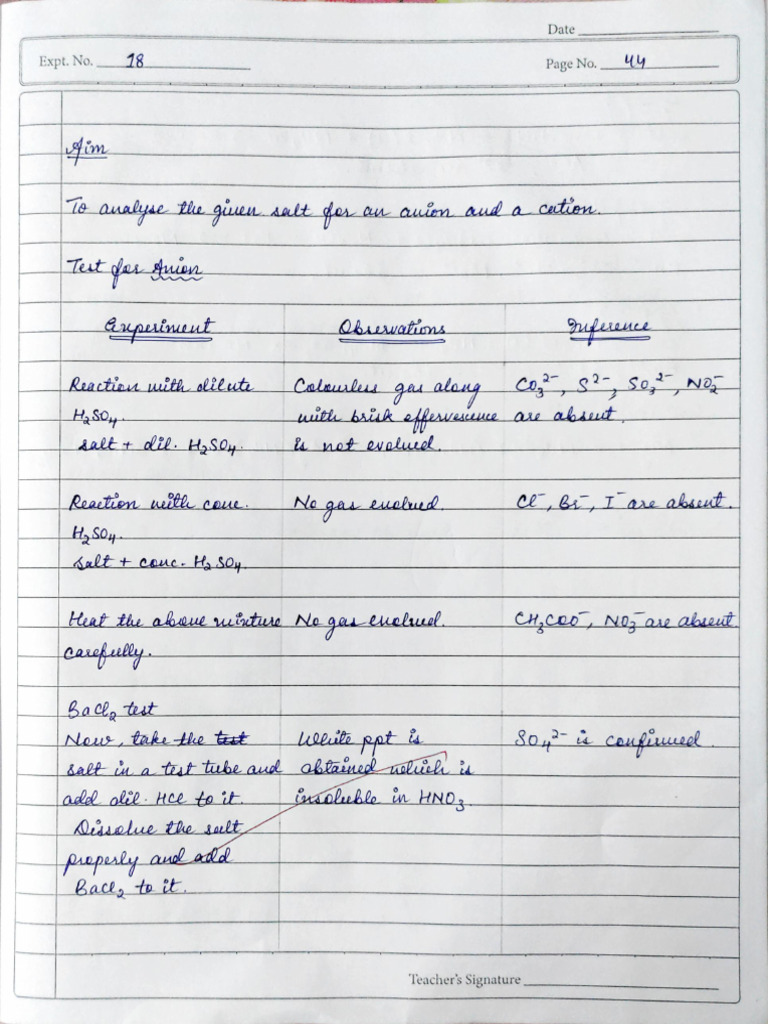 Date
Expt. No. 18
Page No. 44
Aim
To analyse the given salt for an anion and a cation.
Test for Anion
Experiment Observations Inference
Reaction with dilute Colourless gas along CO₃²⁻, S²⁻, SO₃²⁻, NO₂⁻
H₂SO₄. with brisk effervescence are absent.
salt + dil. H₂SO₄. is not evolved.
Reaction with conc. No gas evolved. Cl⁻, Br⁻, I⁻ are absent.
H₂SO₄.
salt + conc. H₂SO₄.
Heat the above mixture No gas evolved. CH₃COO⁻, NO₃⁻ are absent.
carefully.
BaCl₂ test
Now, take the test White ppt is SO₄²⁻ is confirmed.
salt in a test tube and obtained which is
add dil. HCl to it. insoluble in HNO₃.
Dissolve the salt
properly and add
BaCl₂ to it.
Teacher's Signature